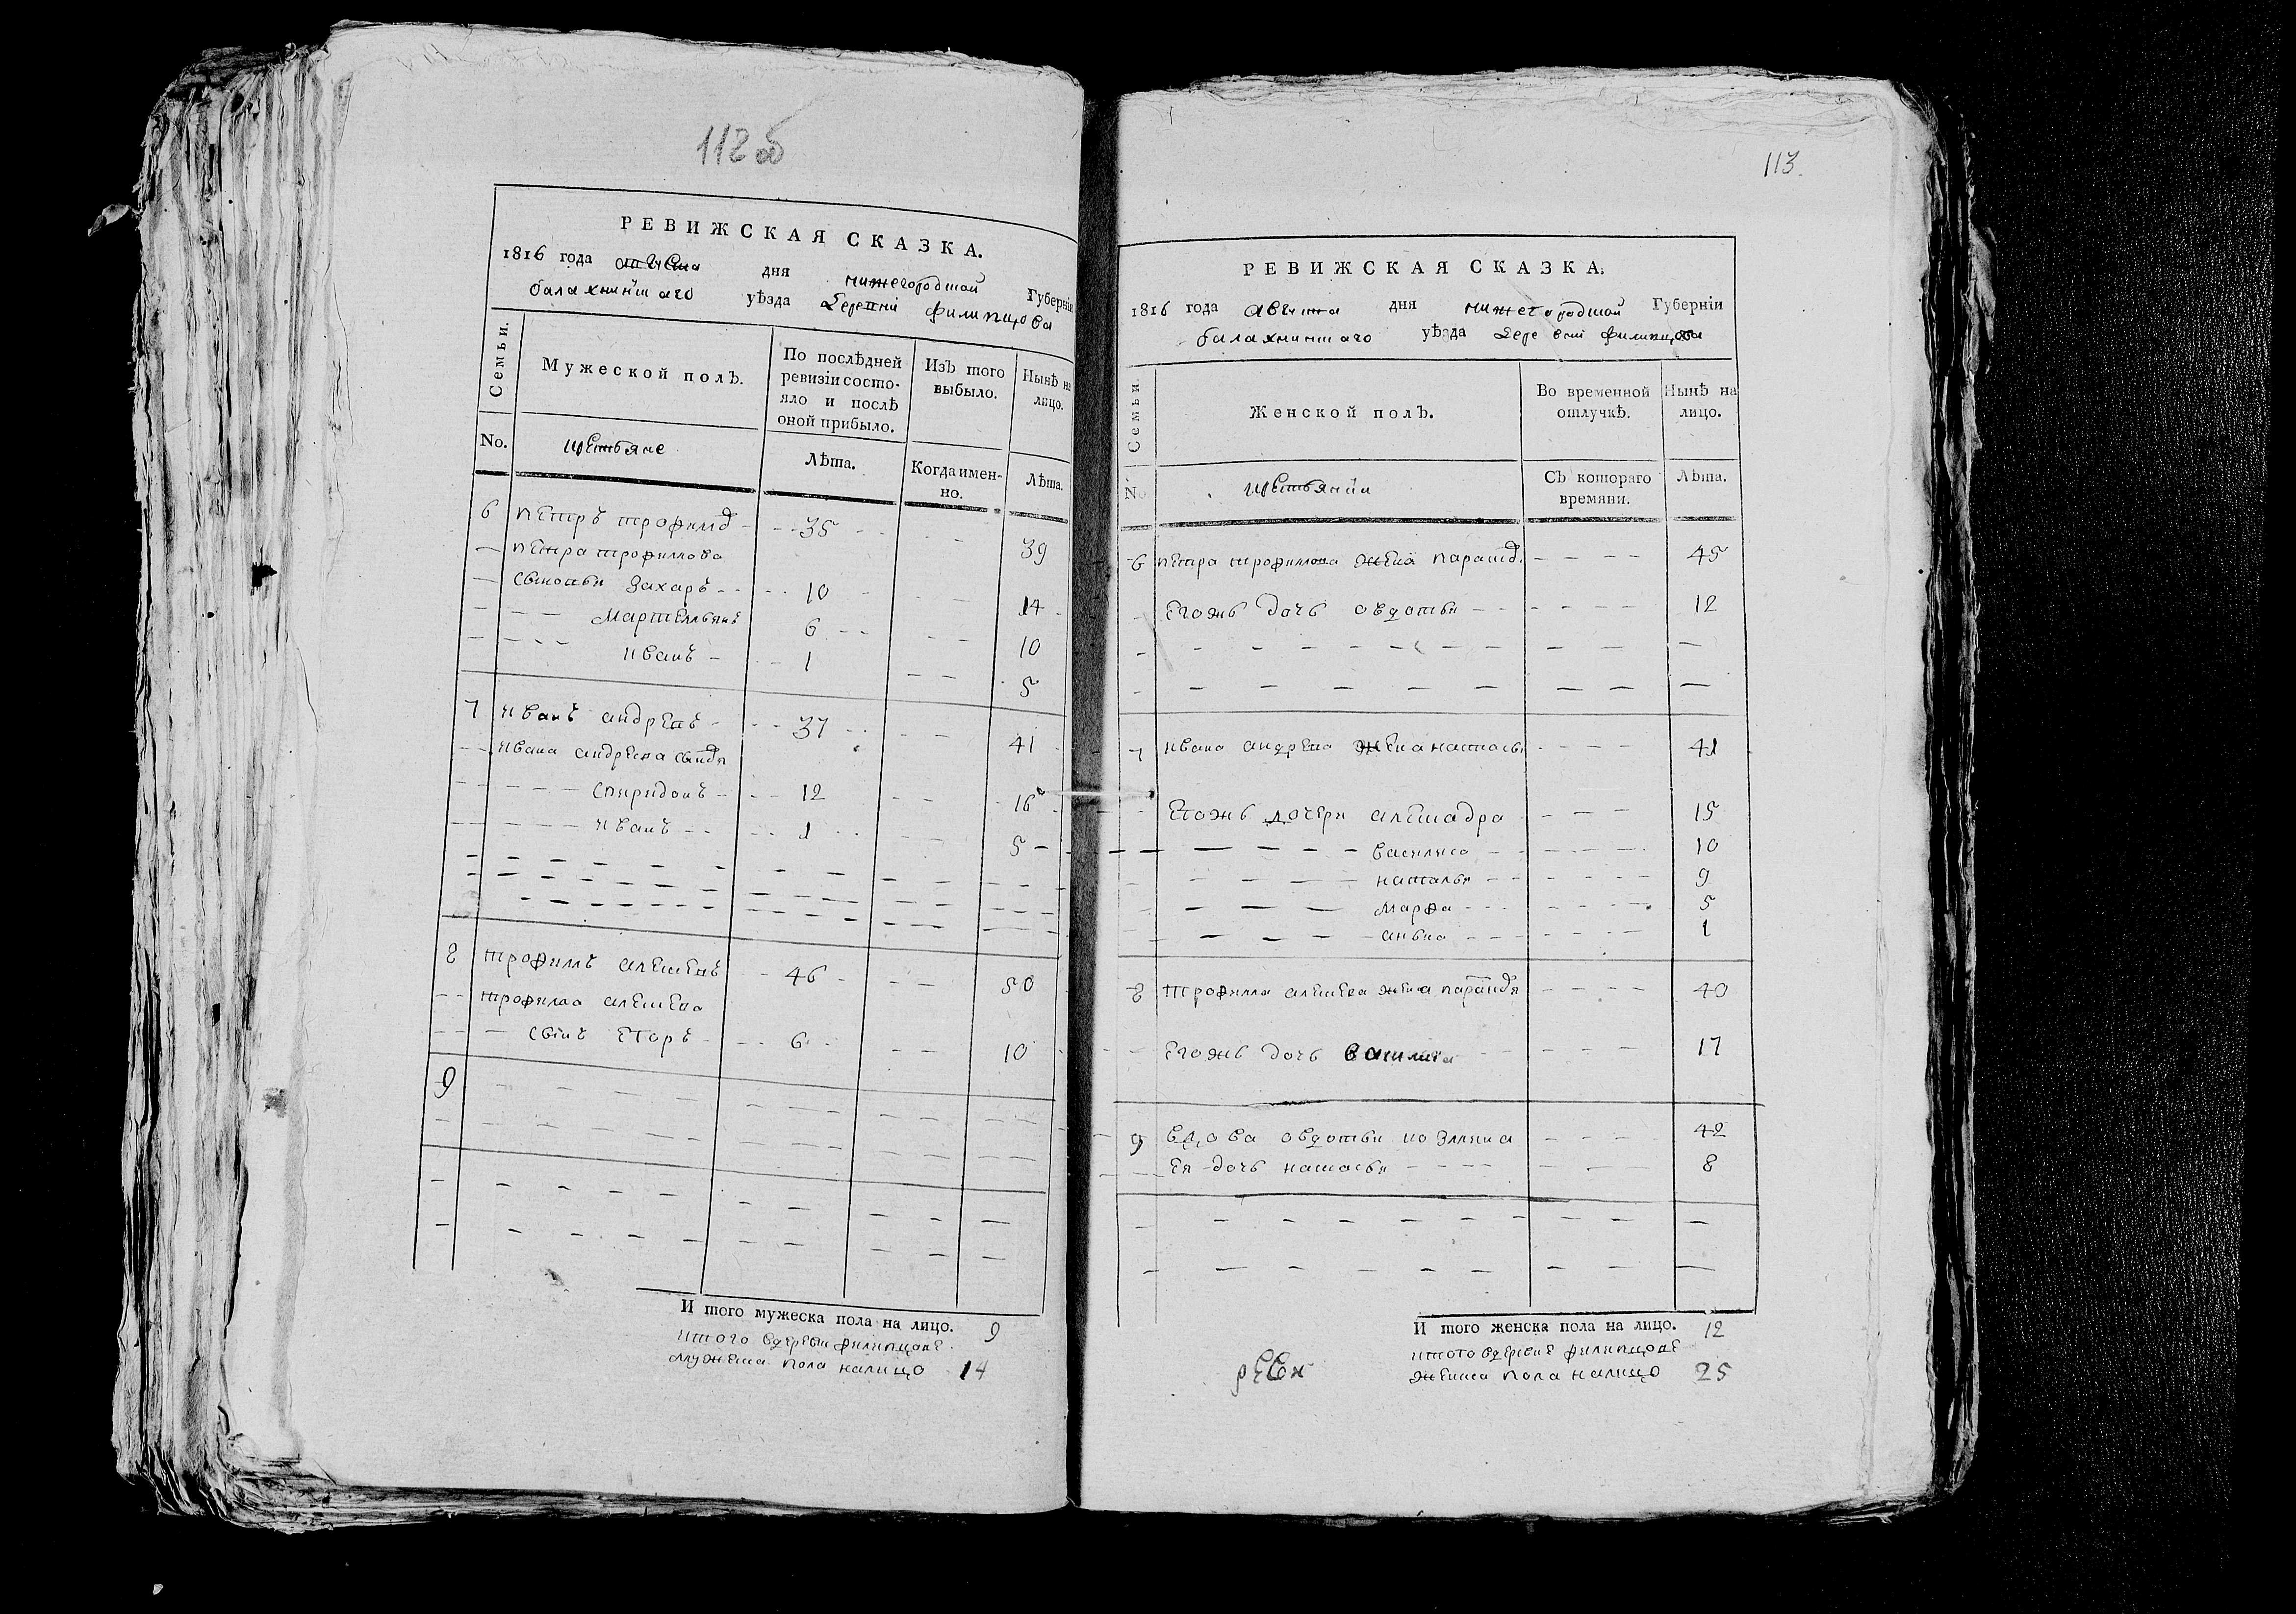 112 об
РЕВИЖСКАЯ СКАЗКА.
1816 года августа дня нижегородской Губерніи
балахнинскаго уѣзда деревни филипцова
Семьи.
Мужеской полъ.
По послѣдней ревизіи состояло и послѣ оной прибыло.
Изъ того выбыло.
Нынѣ на лицо.
No. крестьяне Лѣта. Когда именно. Лѣта.
6 петръ трофимовъ - - - 35 - - - - 39
— петра трофимова
— сыновья захаръ - - - - 10 - - - 14 -
- - - мартемьянъ 6 - - - - 10
- - - - иванъ - - - 1 - - 5
7 иванъ андреевъ - - - 37 - - - - 41
- - ивана андреева сыновья
- - - - спиридонъ - - - 12 - - - 16
- - - - иванъ - - - - 1 - - - - 5 -
8 трофимъ алексеевъ - - 46 - - - - 50
- - трофима алексеева
- - - сынъ егоръ - - - 6 - - - - 10
9 - - - - - - - - - -
И того мужеска пола на лицо. 9
итого вдеревни филипцове
мужеска пола налицо 14
113.
РЕВИЖСКАЯ СКАЗКА.
1816 года августа дня нижегородской Губерніи
балахнинскаго уѣзда деревни филипцова
Семьи.
Женской полъ.
Во временной отлучкѣ.
Нынѣ на лицо.
No крестьянки Съ котораго времяни. Лѣта.
6 петра трофимова жена парасковья - - - - 45
- егожъ дочь овдотья - - - - - - 12
7 ивана андреева жена настасья - - - - 41
- - егожъ дочери александра - - - 15
- - - - василиса - - - - - 10
- - - - наталья - - - - - - 9
- - - - марфа - - - - - - 5
- - - - анъна - - - - - - 1
8 трофима алексеева жена парасковья - - - - 40
- - егожъ дочь василиса - - - - - - 17
9 вдова овдотья козмина - - - - 42
- - ея дочь настасья - - - - - - 8
И того женска пола на лицо. 12
итого вдеревне филипцове
женска пола налицо 25
реви